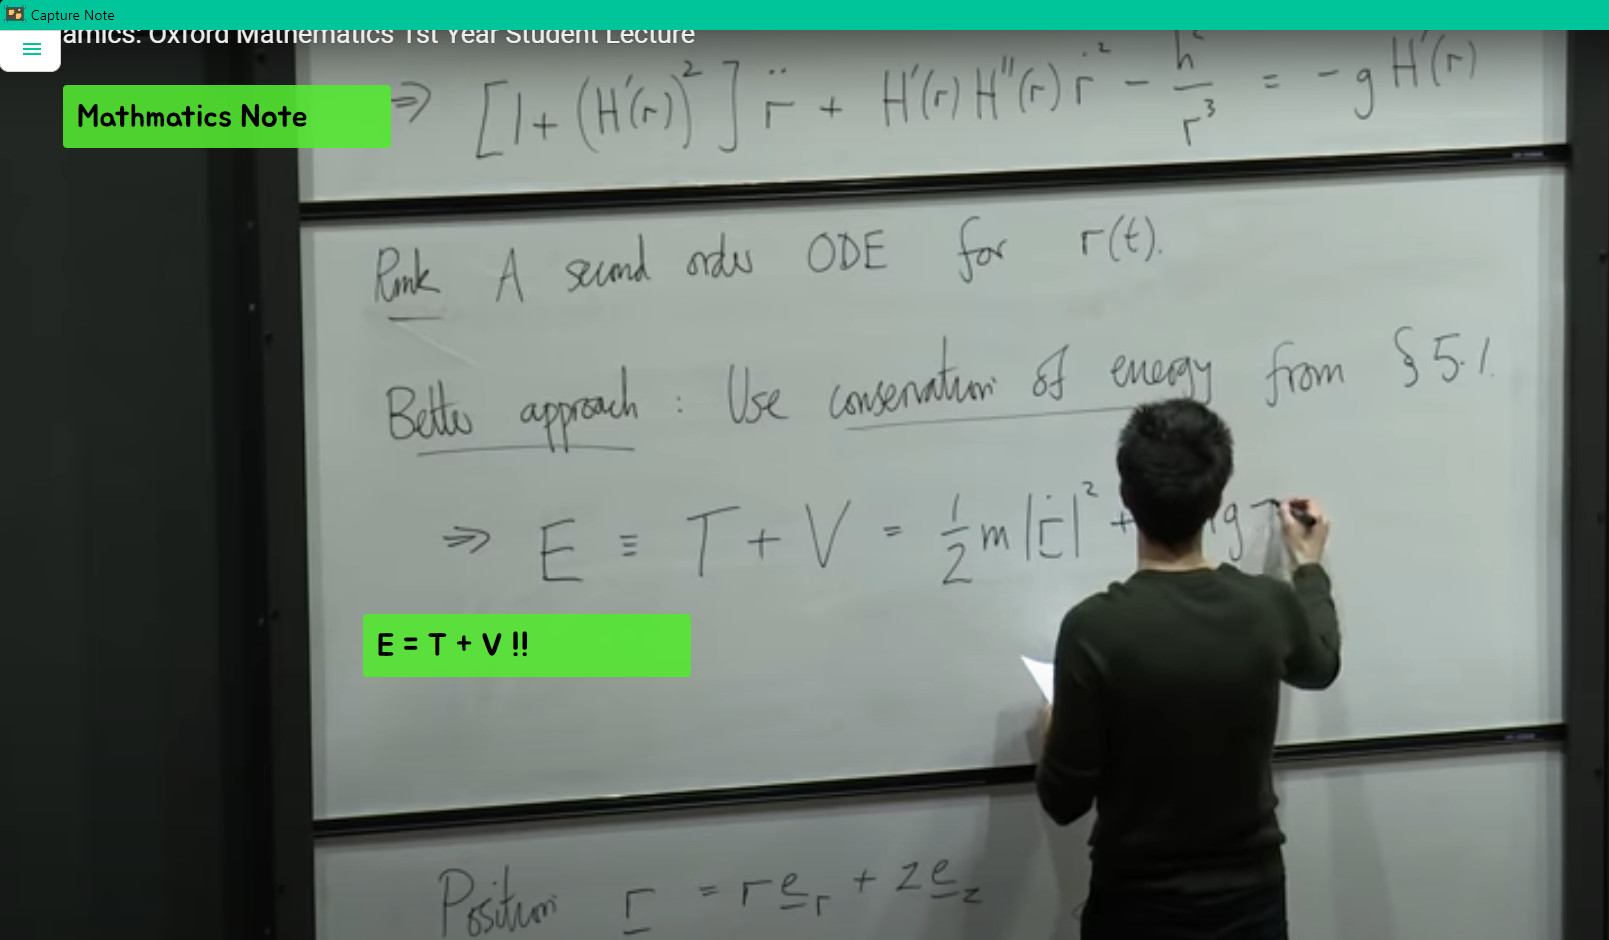 Capture Note
amics: Oxford Mathematics 1st Year Student Lecture
⇒ [1+ (H'(r))²] r̈ + H'(r) H''(r) ṙ² − h²/r³ = −g H'(r)
Mathmatics Note
Rmk A second order ODE for r(t).
Better approach : Use conservation of energy from § 5.1.
⇒ E ≡ T + V = 1/2 m |ṙ|² + g
E = T + V !!
Position r = r e_r + z e_z